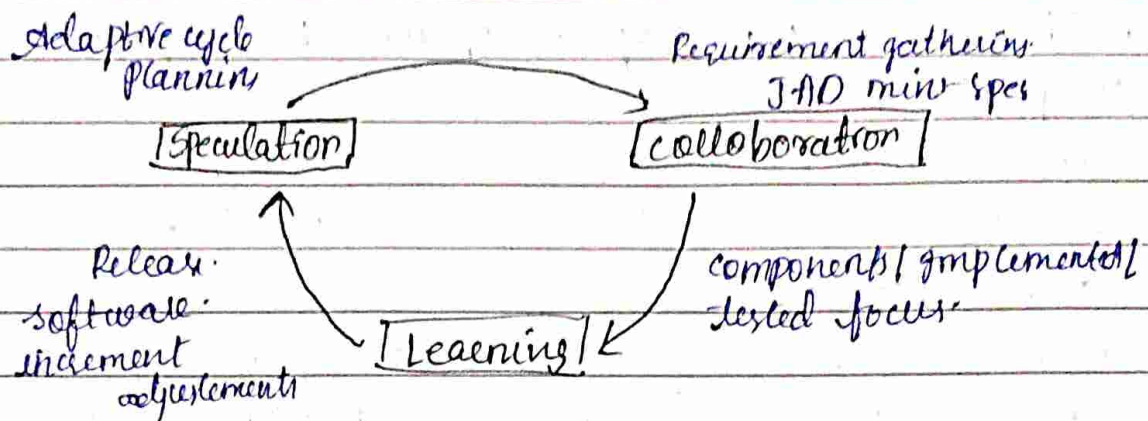 Adaptive cycle
Planning
Requirement gathering
JAD mini spec
Speculation
Colloboration
Release
software
increment
adjustements
components / implemented /
tested focus
Learning